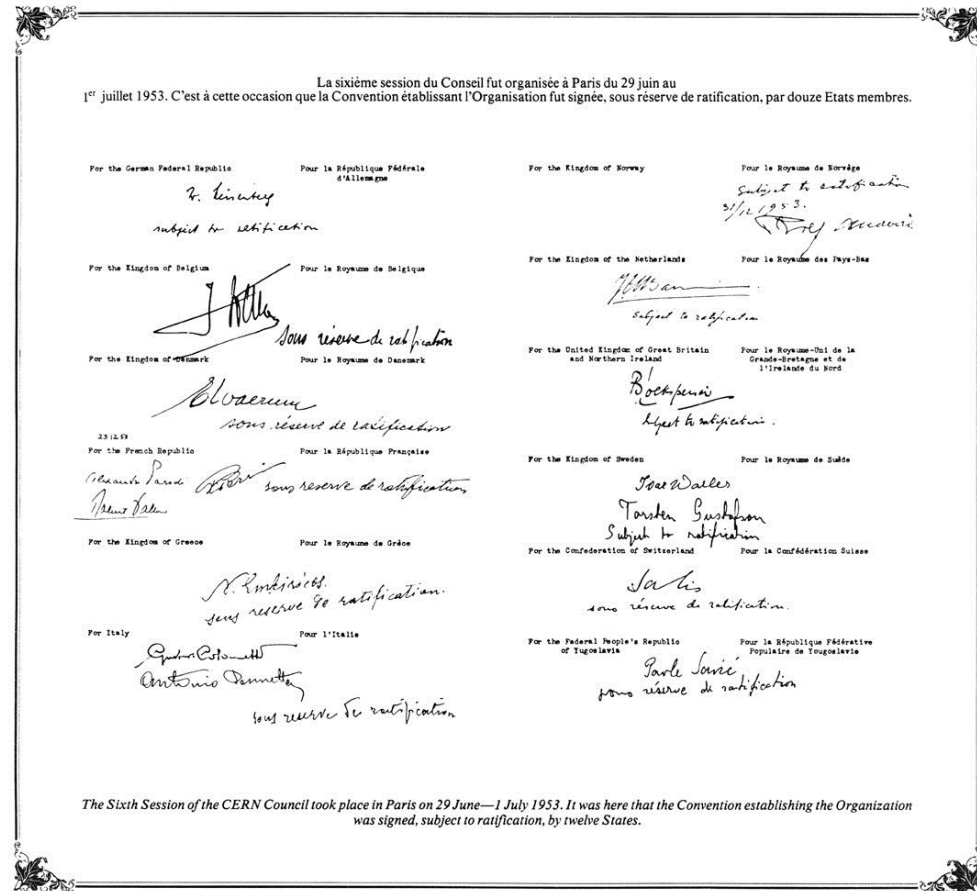 La sixième session du Conseil fut organisée à Paris du 29 juin au
1er juillet 1953. C'est à cette occasion que la Convention établissant l'Organisation fut signée, sous réserve de ratification, par douze Etats membres.
For the German Federal Republic
Pour la République Fédérale
d'Allemagne
subject to ratification
For the Kingdom of Belgium
Pour le Royaume de Belgique
sous réserve de ratification
For the Kingdom of Denmark
Pour le Royaume de Danemark
sous réserve de ratification
23 12 53
For the French Republic
Pour la République Française
Alexandre Parodi
sous reserve de ratification
For the Kingdom of Greece
Pour le Royaume de Grèce
sous reserve de ratification.
For Italy
Pour l'Italie
Gustavo Colonnetti
Antonio Pennetta
sous reserve de ratification
For the Kingdom of Norway
Pour le Royaume de Norvège
Subject to ratification
31/12 1953.
For the Kingdom of the Netherlands
Pour le Royaume des Pays-Bas
subject to ratification
For the United Kingdom of Great Britain
and Northern Ireland
Pour le Royaume-Uni de la
Grande-Bretagne et de
l'Irelande du Nord
subject to ratification.
For the Kingdom of Sweden
Pour le Royaume de Suède
Ivar Waller
Torsten Gustafson
Subject to ratification
For the Confederation of Switzerland
Pour la Confédération Suisse
Salis
sous réserve de ratification.
For the Federal People's Republic
of Yugoslavia
Pour la République Fédérative
Populaire de Yougoslavie
Pavle Savić
sous réserve de ratification
The Sixth Session of the CERN Council took place in Paris on 29 June—1 July 1953. It was here that the Convention establishing the Organization
was signed, subject to ratification, by twelve States.